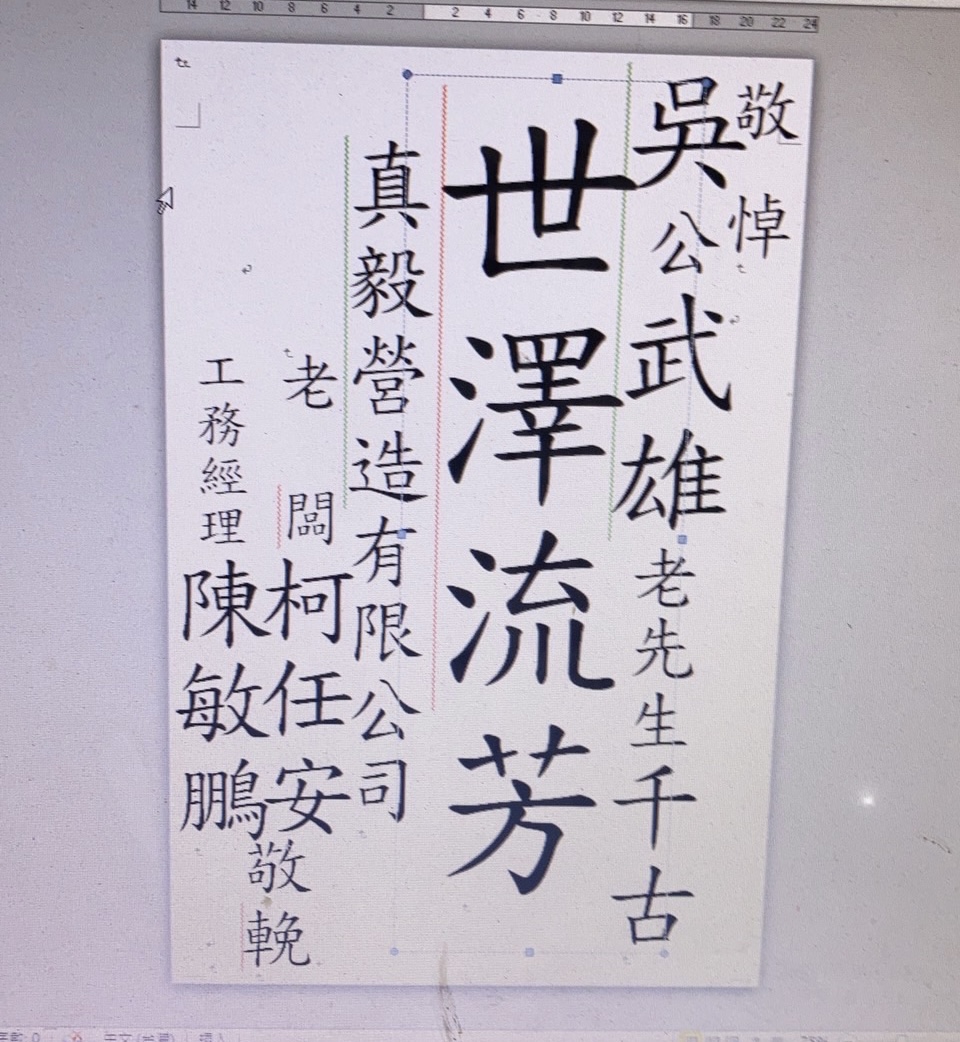 14 12 10 8 6 4 2 2 4 6 8 10 12 14 16 18 20 22 24
敬悼
吳公武雄老先生千古
世澤流芳
真毅營造有限公司
老闆柯任安
工務經理陳敏鵬
敬輓